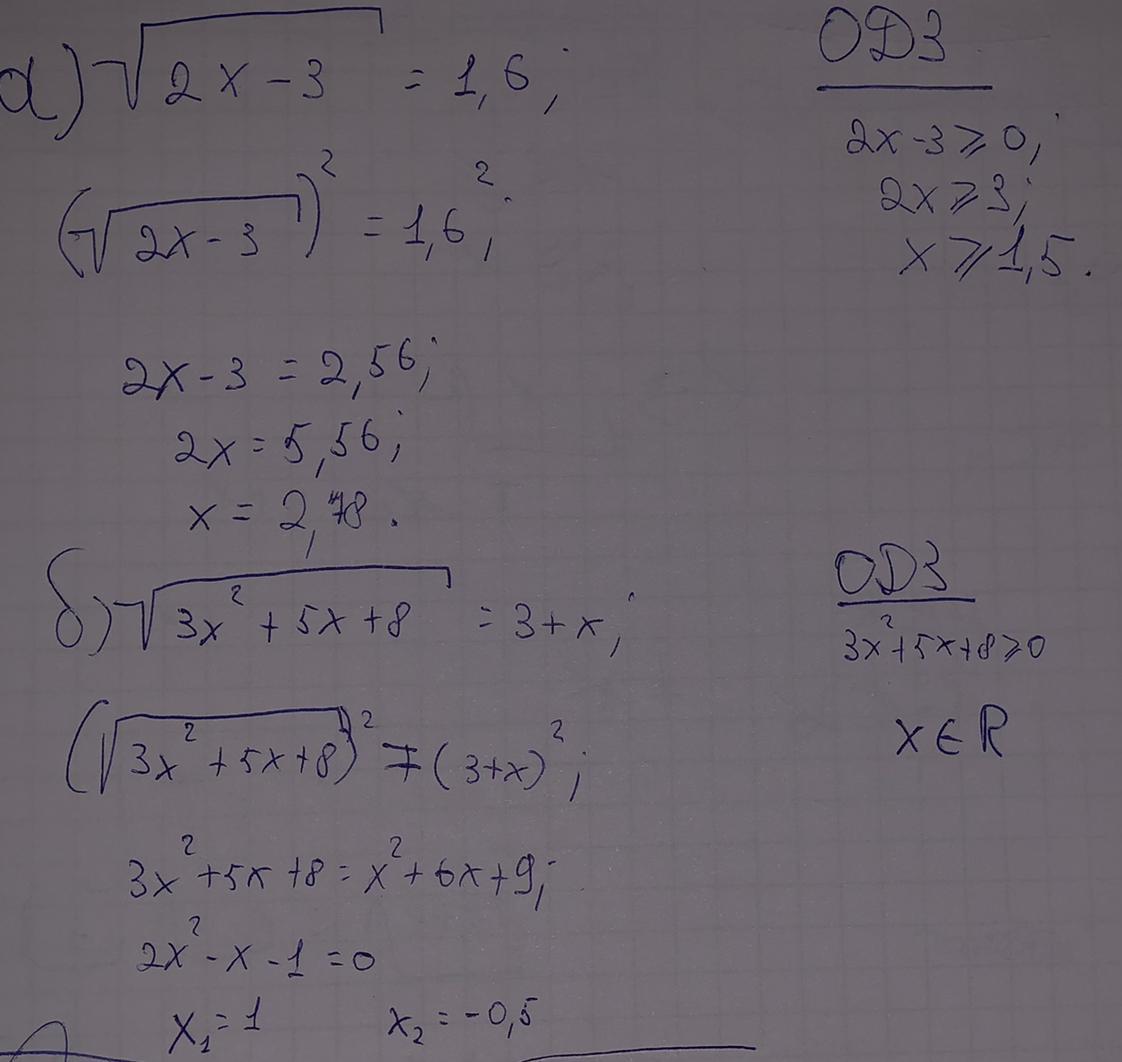 а) √(2x-3) = 1,6;
ОДЗ
2x-3⩾0;
2x⩾3;
x⩾1,5.
(√(2x-3))² = 1,6²;
2x-3 = 2,56;
2x = 5,56;
x = 2,78.
б) √(3x²+5x+8) = 3+x;
ОДЗ
3x²+5x+8⩾0
x∈R
(√(3x²+5x+8))² = (3+x)²;
3x²+5x+8 = x²+6x+9;
2x²-x-1=0
x₁=1 x₂=-0,5